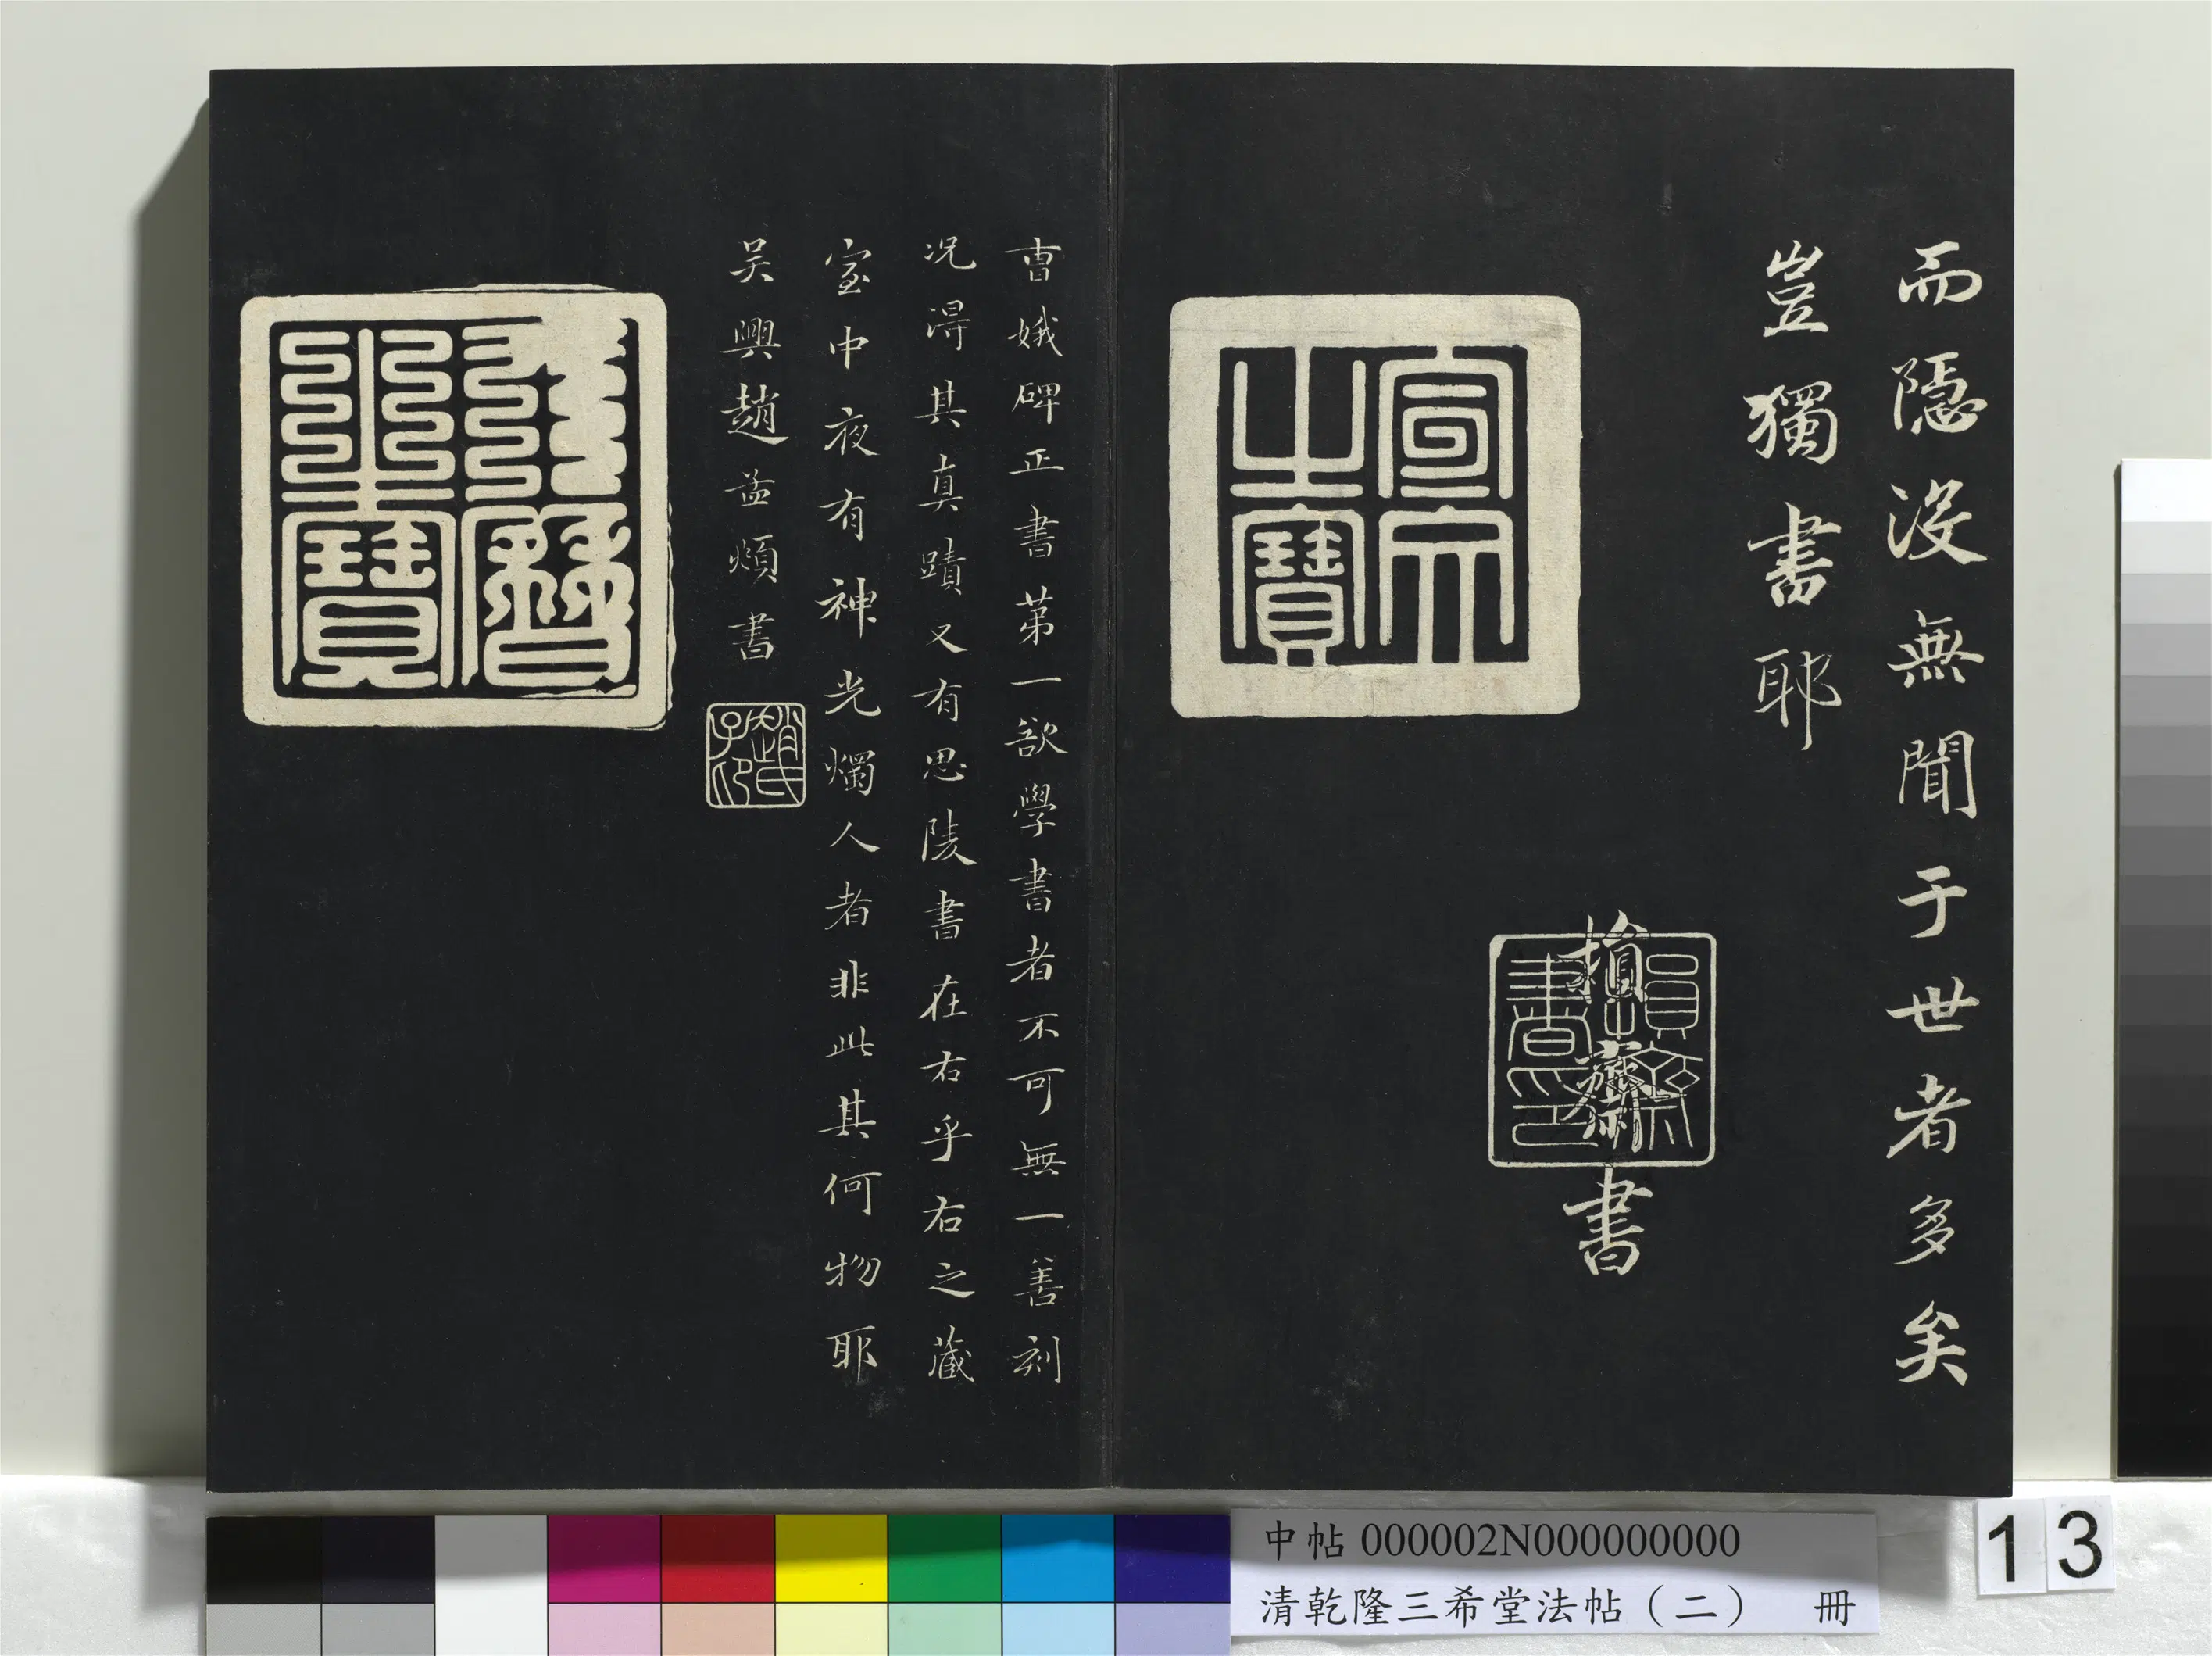 而隱没無聞于世者多矣
豈獨書耶
宣文之寶
損齋書
損齋書印
曹娥碑正書第一欲學書者不可無一善刻
况得其真蹟又有思陵書在右乎右之藏
室中夜有神光燭人者非此其何物耶
吴興趙孟頫書
趙氏子昂
天曆之寶
中帖 000002N000000000
清乾隆三希堂法帖（二） 冊
13